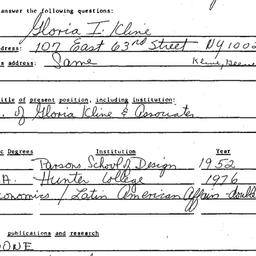 answer the following questions:
Gloria I. Kline
dress: 107 East 63rd Street NY 1002
s address: Same Kline,
title of present position, including institution:
. of Gloria Kline & Associates
ic Degrees Institution Year
Parsons School of Design 1952
A. Hunter College 1976
onomics / Latin American Affairs - double
publications and research
ONE